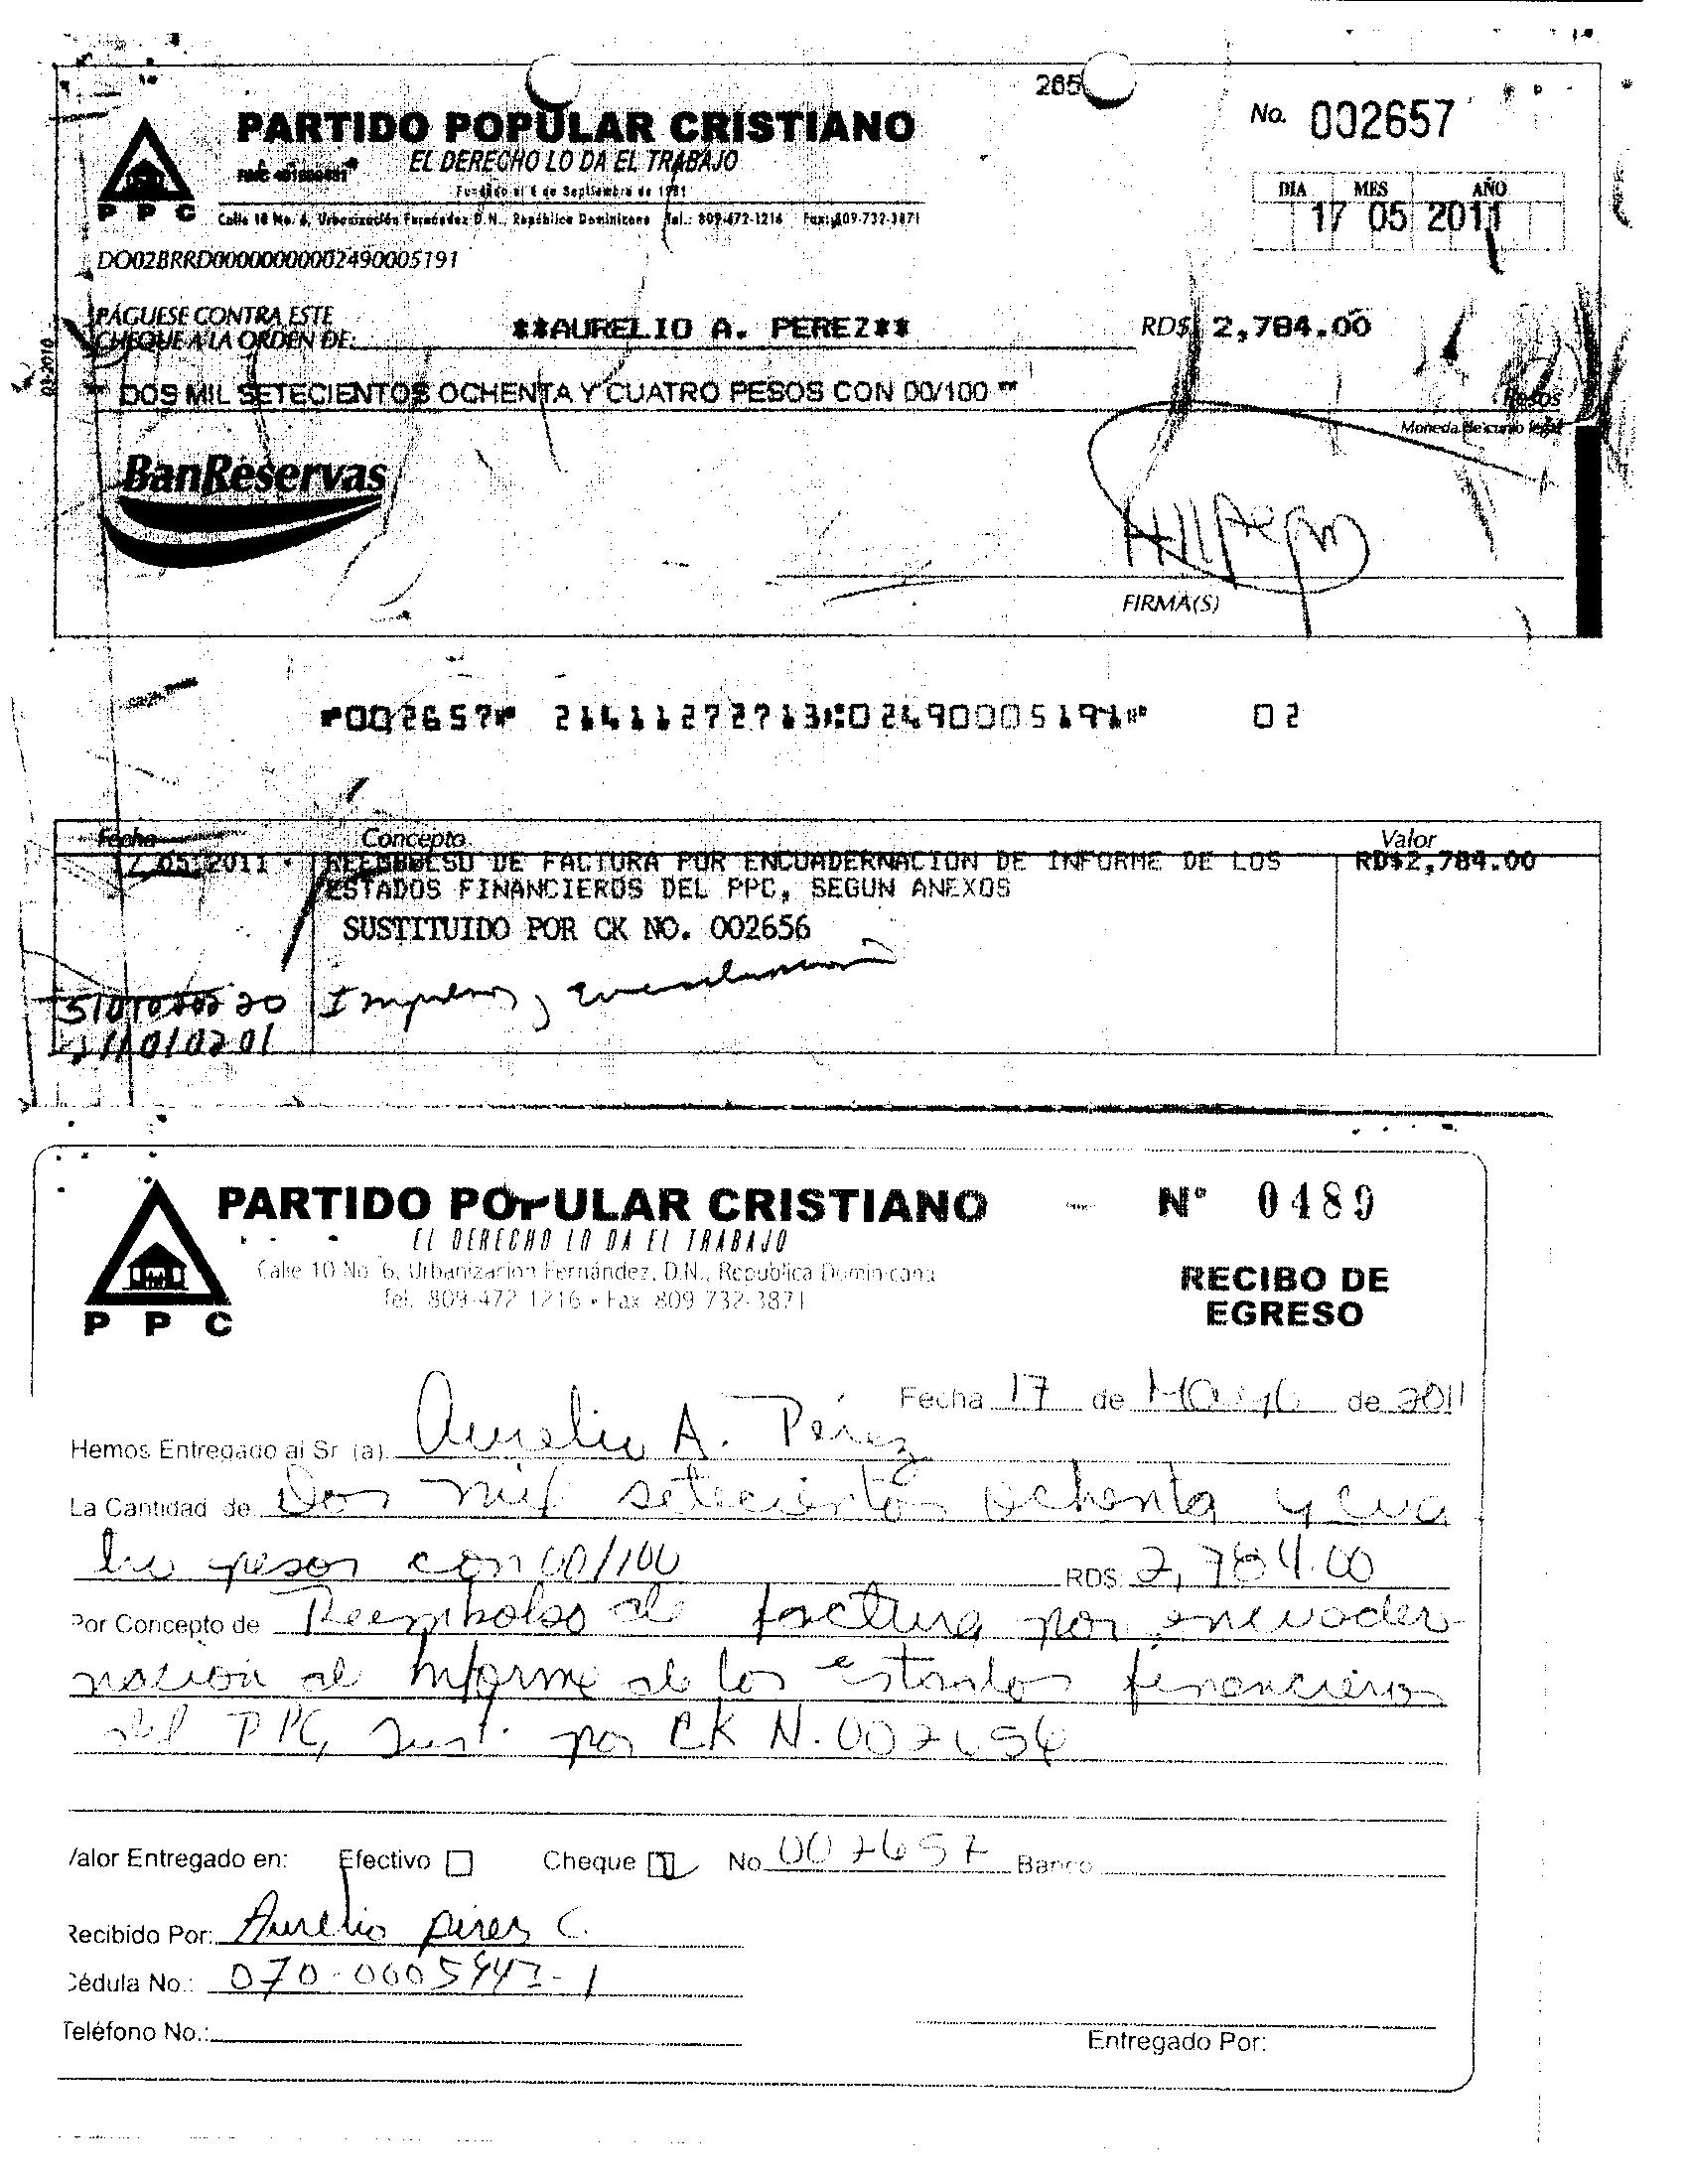 265
PARTIDO POPULAR CRISTIANO
No. 002657
EL DERECHO LO DA EL TRABAJO
Fundido el 6 de Septiembre de 1981
DIA MES AÑO
17 05 2011
P P C
Calle 10 No. 6, Urbanización Fernández D.N., República Dominicana Tel.: 809-472-1216 Fax: 809-732-3871
DO02BRRD00000000002490005191
PÁGUESE CONTRA ESTE
CHEQUE A LA ORDEN DE: **AURELIO A. PEREZ** RD$ 2,784.00
03-2010
** DOS MIL SETECIENTOS OCHENTA Y CUATRO PESOS CON 00/100 ** Pesos
Moneda de curso legal
BanReservas
FIRMA(S)
⑈002657⑈ 21411272713⑆02490005191⑈ 02
Fecha Concepto Valor
17 05 2011 REEMBOLSO DE FACTURA POR ENCUADERNACION DE INFORME DE LOS RD$2,784.00
ESTADOS FINANCIEROS DEL PPC, SEGUN ANEXOS
SUSTITUIDO POR CK NO. 002656
PARTIDO POPULAR CRISTIANO Nº 0489
EL DERECHO LO DA EL TRABAJO
Calle 10 No. 6, Urbanización Fernández, D.N., República Dominicana
Tel. 809-472-1216 • Fax 809-732-3871
RECIBO DE
EGRESO
P P C
Fecha 17 de Mayo de 2011
Hemos Entregado al Sr. (a) Aurelio A. Pérez
La Cantidad de Dos mil setecientos ochenta y cua
tro pesos con 00/100 RD$ 2,784.00
Por Concepto de Reembolso de factura por encuader
nación de Informe de los estados financieros
del PPC, sust. por CK N. 002656
Valor Entregado en: Efectivo Cheque No. 002657 Banco
Recibido Por: Aurelio Perez C.
Cédula No.: 070-0005447-1
Teléfono No.:
Entregado Por: